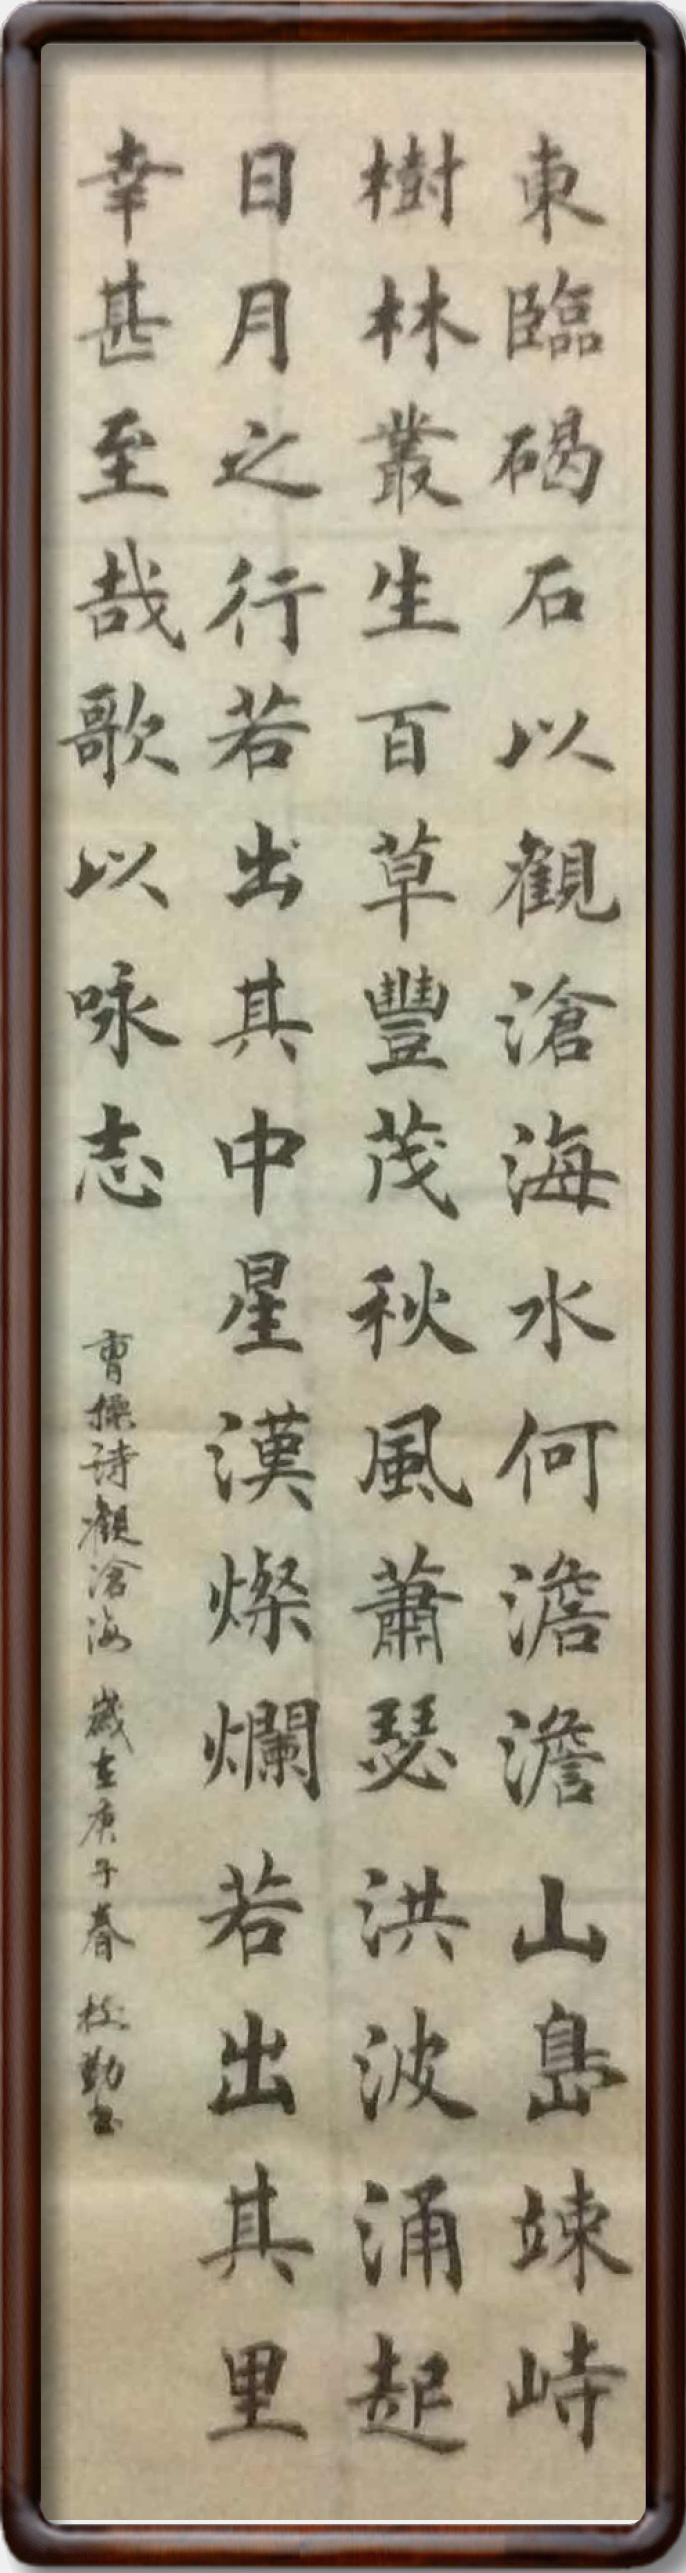 東臨碣石以觀滄海水何澹澹山島竦峙
樹林叢生百草豐茂秋風蕭瑟洪波涌起
日月之行若出其中星漢燦爛若出其里
幸甚至哉歌以咏志
曹操詩觀滄海 歲在庚子春 勤书